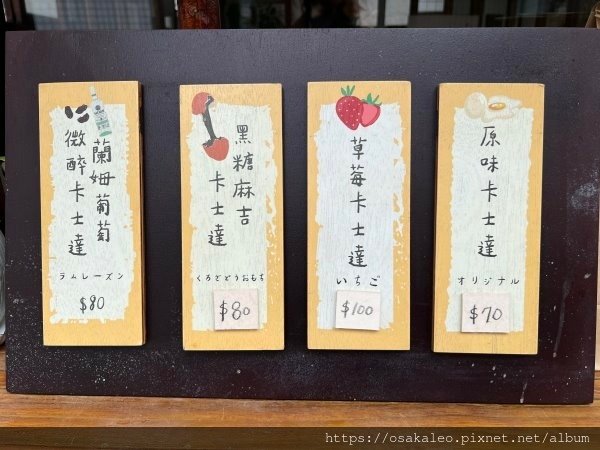 原味卡士達
オリジナル
$70
草莓卡士達
いちご
$100
黑糖麻吉
卡士達
くろどどうおもち
$80
蘭姆葡萄
微醉卡士達
ラムレーズン
$80
https://osakaleo.pixnet.net/album